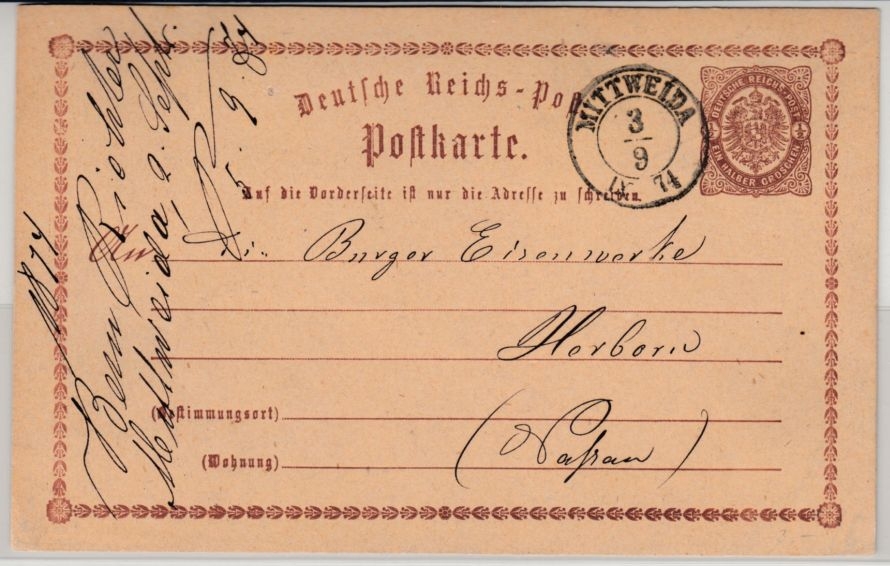 Deutsche Reichs-Post
Postkarte.
Auf die Vorderseite ist nur die Adresse zu schreiben.
MITTWEIDA
3
9
IV 74
DEUTSCHE REICHS-POST
EIN HALBER GROSCHEN
An Die Burger Eisenwerke
Herborn
(Bestimmungsort)
(Wohnung)
(Nassau)
1874
Mittweida 2. Sept.
5. 9.